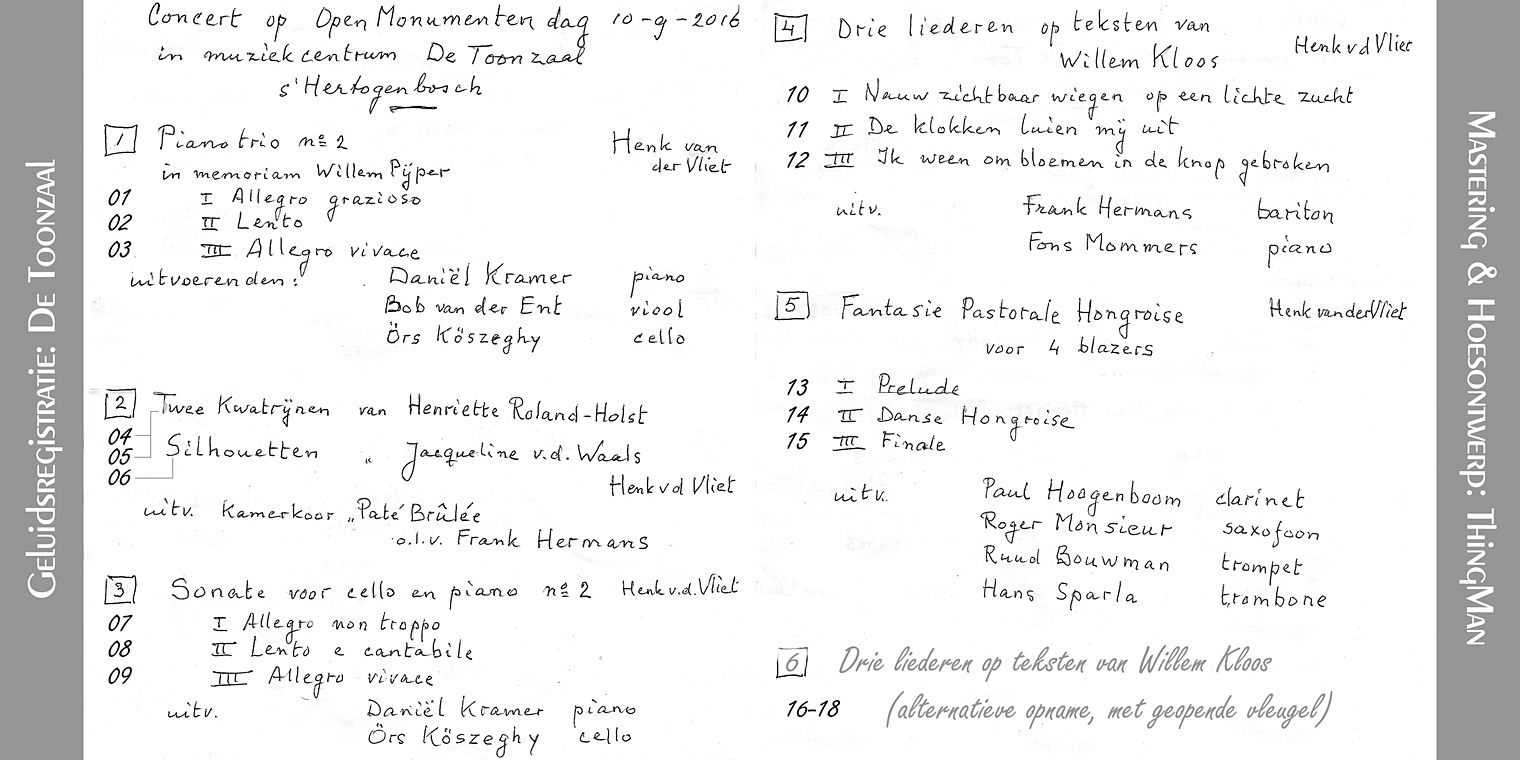 Geluidsregistratie: De Toonzaal
Concert op Open Monumenten dag 10-9-2016
in muziekcentrum De Toonzaal
s'Hertogenbosch
1 Pianotrio nº 2 Henk van
der Vliet
in memoriam Willem Pijper
01 I Allegro grazioso
02 II Lento
03 III Allegro vivace
uitvoerenden: Daniël Kramer piano
Bob van der Ent viool
Örs Köszeghy cello
2 Twee Kwatrijnen van Henriette Roland-Holst
04
05 Silhouetten " Jacqueline v.d. Waals
06
Henk v d Vliet
uitv. Kamerkoor „Paté Brûlée
o.l.v. Frank Hermans
3 Sonate voor cello en piano nº 2 Henk v.d. Vliet
07 I Allegro non troppo
08 II Lento e cantabile
09 III Allegro vivace
uitv. Daniël Kramer piano
Örs Köszeghy cello
4 Drie liederen op teksten van
Willem Kloos Henk v d Vliet
10 I Nauw zichtbaar wiegen op een lichte zucht
11 II De klokken luien mij uit
12 III Ik ween om bloemen in de knop gebroken
uitv. Frank Hermans bariton
Fons Mommers piano
5 Fantasie Pastorale Hongroise Henk van der Vliet
voor 4 blazers
13 I Prelude
14 II Danse Hongroise
15 III Finale
uitv. Paul Hoogenboom clarinet
Roger Monsieur saxofoon
Ruud Bouwman trompet
Hans Sparla trombone
6 Drie liederen op teksten van Willem Kloos
16-18 (alternatieve opname, met geopende vleugel)
Mastering & Hoesontwerp: ThingMan